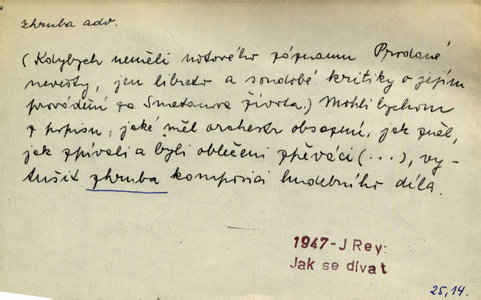 zhruba adv.
(Kdybych neměli notového záznamu Prodané
nevěsty, jen libreto a soudobé kritiky o jejím
provádění za Smetanova života.) Mohli bychom
z popisu, jaké měl orchestr obsazení, jak zněl,
jak zpívali a byli oblečeni zpěváci (...), vy-
tušit zhruba komposici hudebního díla.
1947-J Rey:
Jak se dívat
25,14.